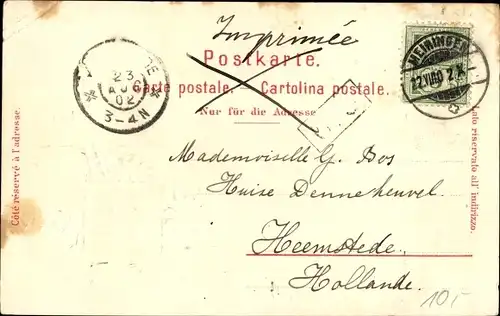 Imprimée
Postkarte.
Carte postale. — Cartolina postale.
Nur für die Adresse
MEIRINGEN
23
AUG
02
3-4N
Mademoiselle G. Bos
Huize Dennenheuvel.
Heemstede.
Hollande.
Côté réservé à l'adresse.
Lato riservato all' indirizzo.
10,-